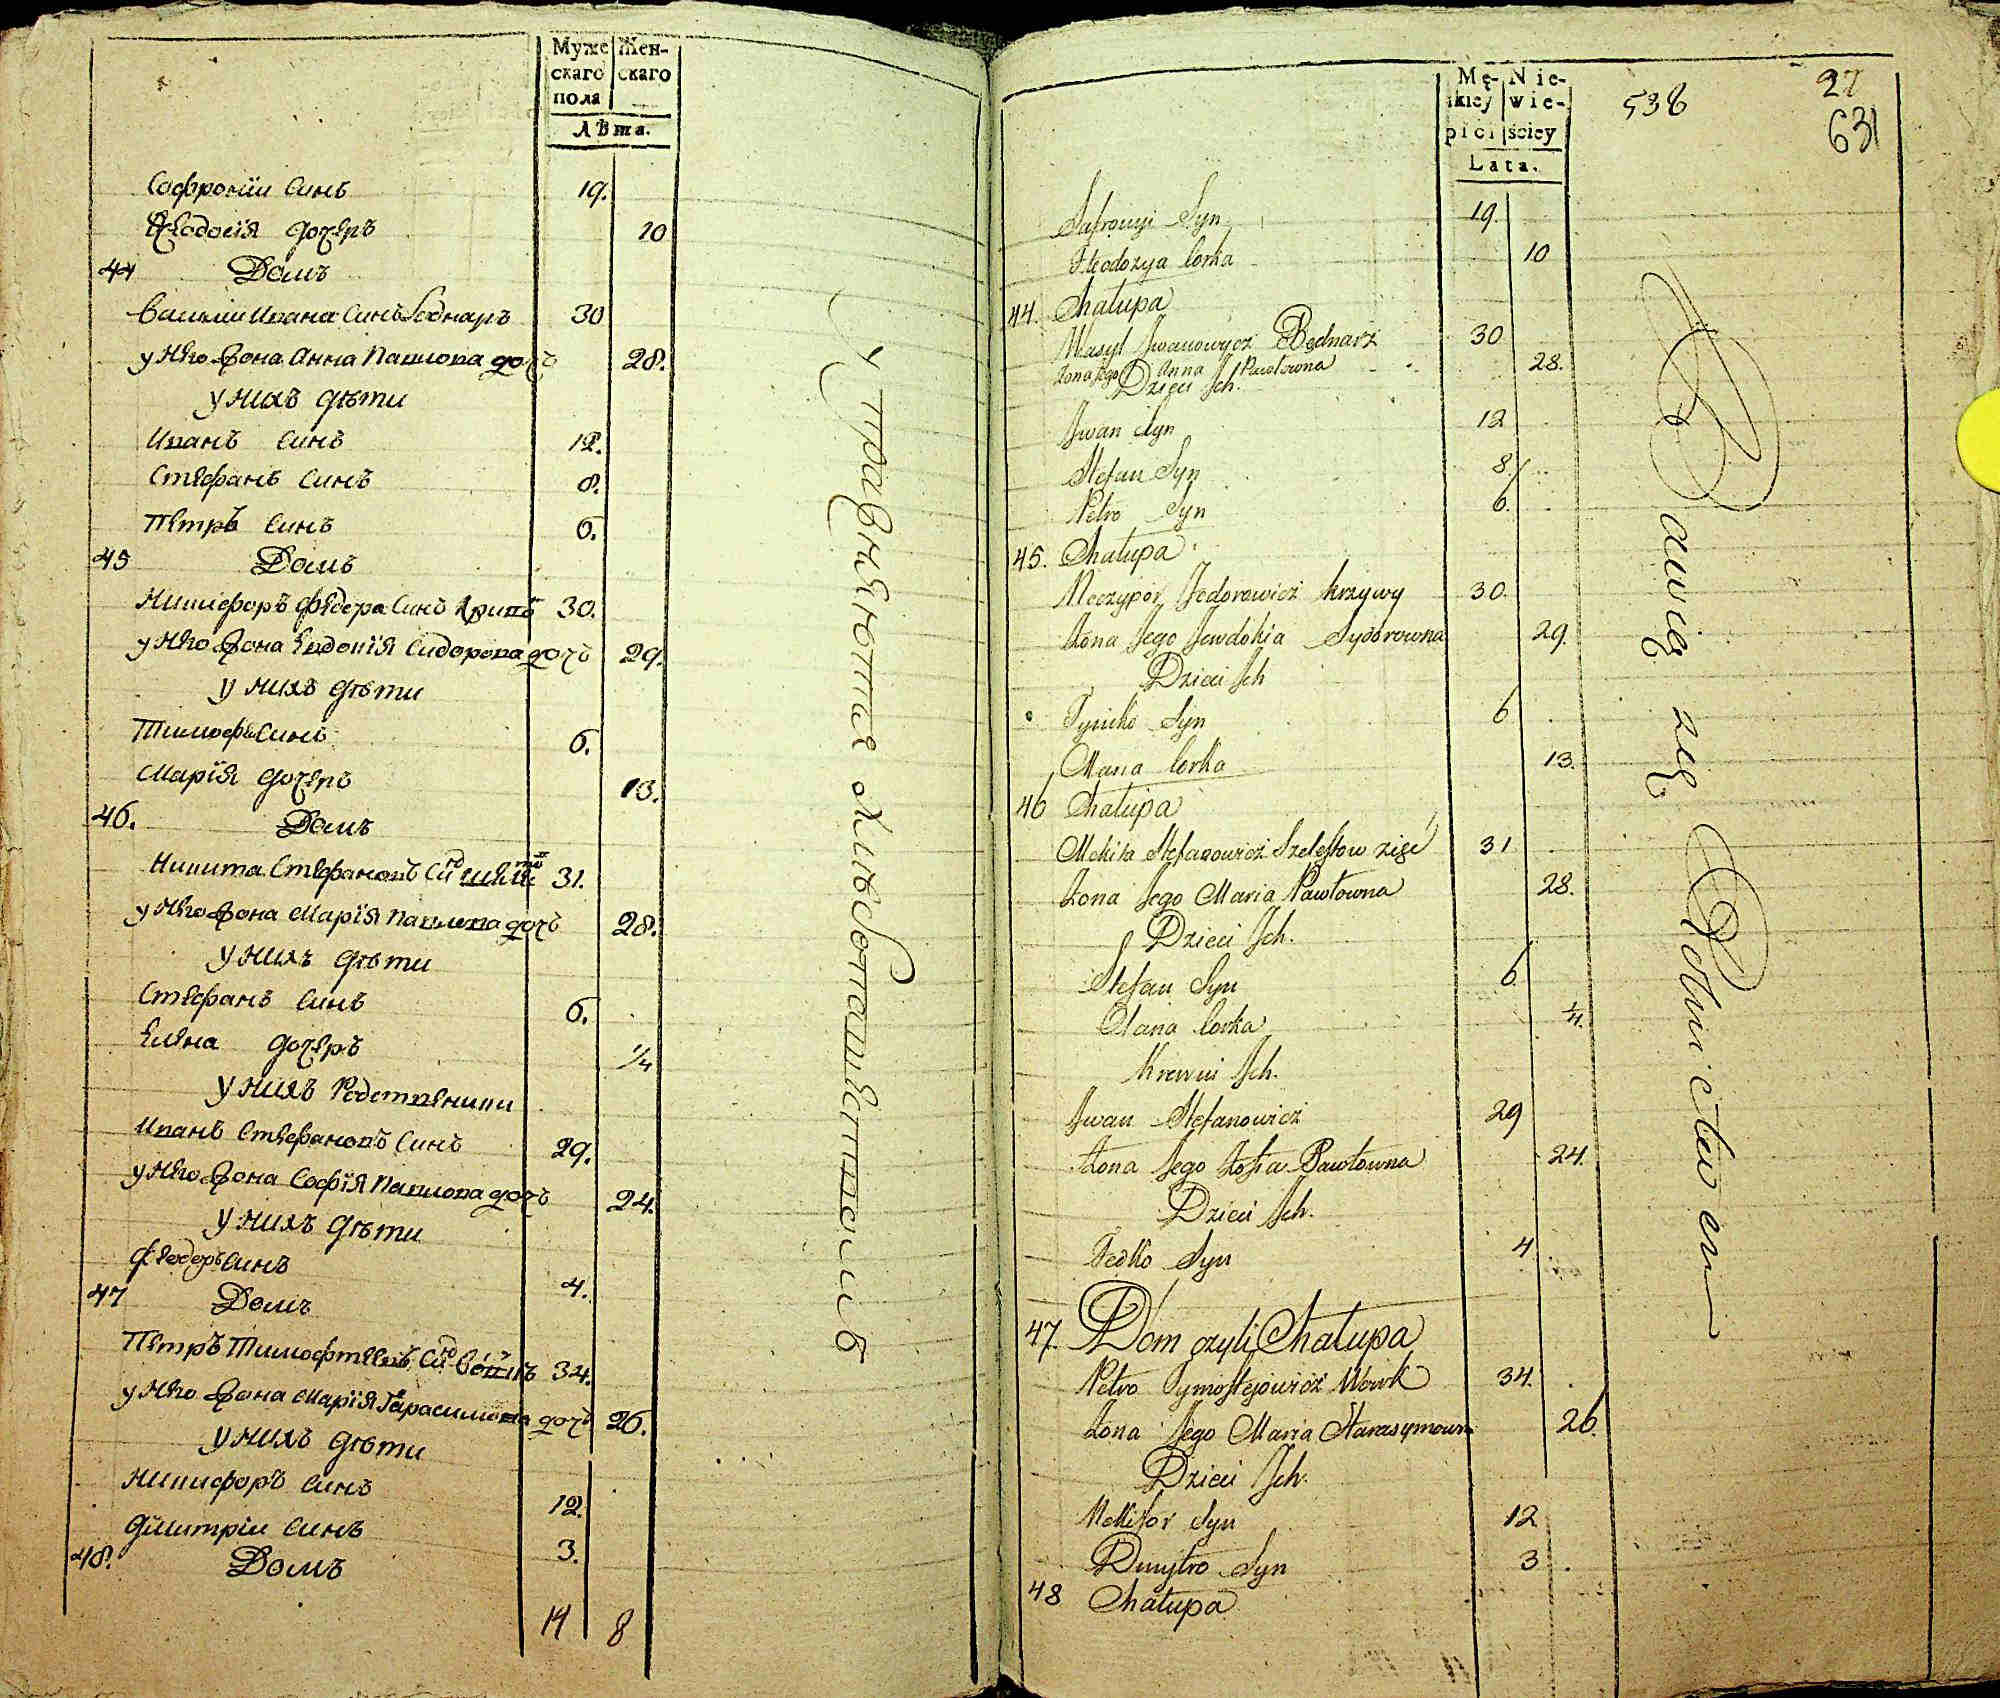 Муже Жен-
скаго скаго
пола
Лѣта.
Софроніи Синъ 19.
Ѳеодосія дочеръ 10
44 Домъ
Василіи Ивана Синъ Беднаръ 30
у Него Жона Анна Павлова дочъ 28.
у Нихъ дѣти
Иванъ Синъ 12.
Стефанъ Синъ 8.
Петръ Синъ 6.
45 Домъ
Никифоръ Федора Синъ Кривъ 30.
у Него Жона Евдокія Сидорова дочъ 29.
у Нихъ дѣти
Тимофеи Синъ 6.
Марія дочеръ 13.
46. Домъ
Никита Стефановъ Сн 31.
у Него Жона Марія Павлова дочъ 28.
у Нихъ дѣти
Стефанъ Синъ 6.
Елена дочеръ 1/4
у Нихъ Родственики
Иванъ Стефановъ Синъ 29.
у Него Жона Софія Павлова дочъ 24.
у Нихъ дѣти
Феодоръ Синъ 4.
47 Домъ
Петръ Тимофтеевъ Сн Вовкъ 34.
у Него Жона Марія Гарасимова дочъ 26.
у Нихъ дѣти
Никифоръ Синъ 12.
Дмитріи Синъ 3.
48. Домъ
14 8
Упражняются хлебопашествомъ
Mę- Nie-
skiey wie-
płci ściey
Lata.
538
27
631
Safronyi Syn 19.
Fteodozya Corka 10
44. Chałupa
Wasyl Jwanowycz Bednarz 30
Zona Jego Anna Pawłowna 28.
Dzieci Jch.
Jwan Syn 12
Stefan Syn 8.
Petro Syn 6.
45. Chałupa
Neczypor Fedorowicz krzywy 30.
Zona Jego Jewdokia Sydorowna 29.
Dzieci Jch
Tymko Syn 6
Maria Corka 13.
46 Chałupa
Mekita Stefanowicz Szelestow zięć 31
Zona Jego Maria Pawłowna 28.
Dzieci Jch.
Stefan Syn 6.
Olana Corka 1/4.
Krewni Jch.
Jwan Stefanowicz 29
Zona Jego Zofia Pawłowna 24.
Dzieci Jch.
Fedko Syn 4
47. Dom czyli Chałupa
Petro Tymoftejowicz Wowk 34.
Zona Jego Maria Harasymowna 26.
Dzieci Jch.
Nekifor Syn 12
Dmytro Syn 3
48 Chałupa
Bawią się Rolnictwem